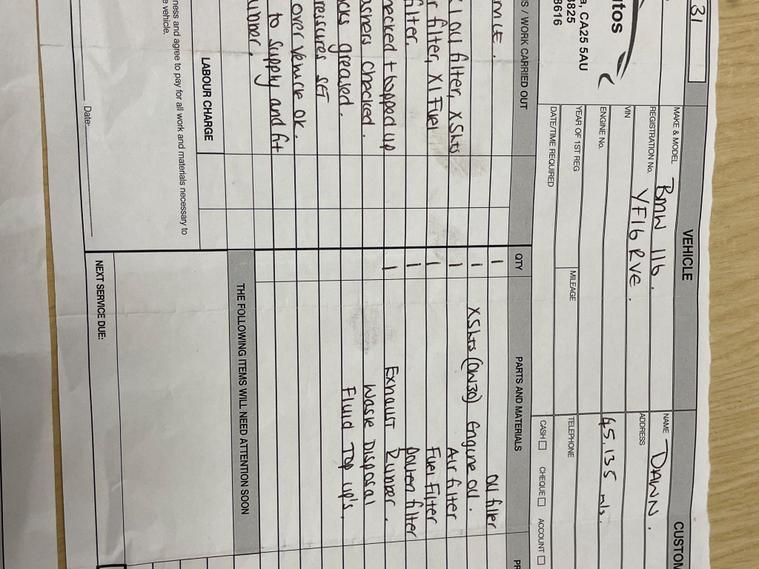 31
tos
a, CA25 5AU
8825
8616
VEHICLE
CUSTOM
MAKE & MODEL BMW 116.
REGISTRATION No. YF16 RVE.
VIN
ENGINE No.
YEAR OF 1ST REG
MILEAGE
DATE/TIME REQUIRED
NAME DAWN.
ADDRESS
45,135 mls.
TELEPHONE
CASH CHEQUE ACCOUNT
S / WORK CARRIED OUT
QTY
PARTS AND MATERIALS
PR
1 Oil filter
1 X5lts (0W30) Engine oil.
1 Air filter
1 Fuel Filter
1 Pollen filter
1 Exhaust Rubber.
Waste Disposal
Fluid Top up's.
1 oil filter, X5lts
r filter, X1 Fuel
filter.
ecked + topped up
ashers checked.
cks greased.
ressures SET
over vehicle ok.
to supply and fit
ubber.
LABOUR CHARGE
THE FOLLOWING ITEMS WILL NEED ATTENTION SOON
NEXT SERVICE DUE:
ness and agree to pay for all work and materials necessary to
e vehicle.
Date: